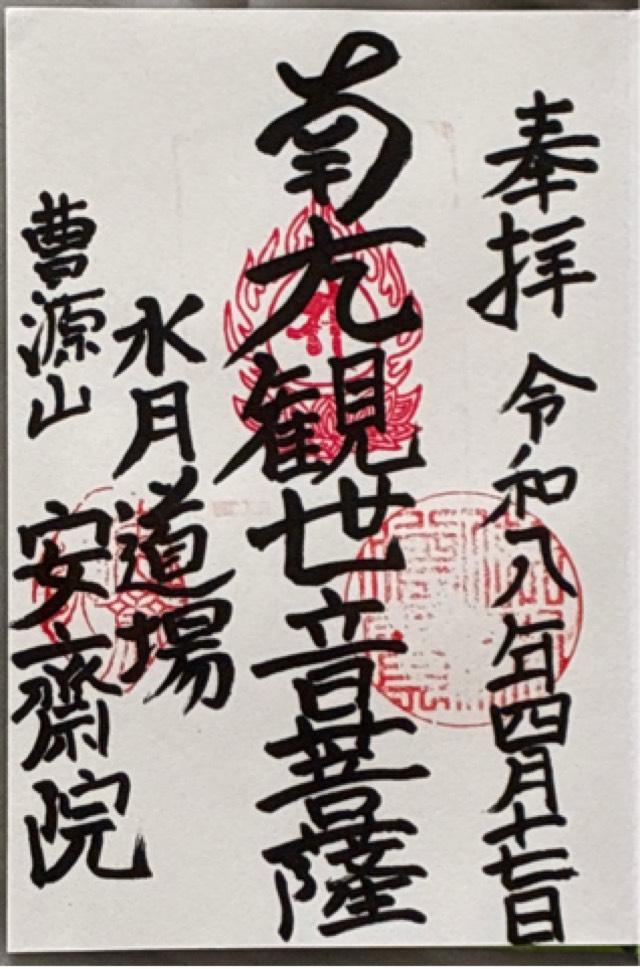 奉拝 令和八年四月十七日
南无観世音菩薩
水月道場
曹源山 安齋院